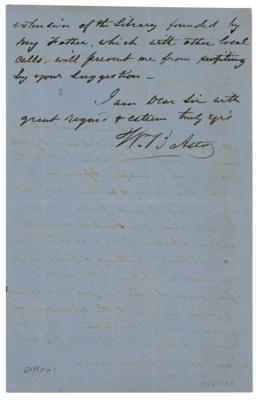 extension of the Library founded by
my Father, which with other local
calls, will prevent me from profiting
by your suggestion –
I am Dear Sir with
great regard & esteem truly yrs
Wm B Astor